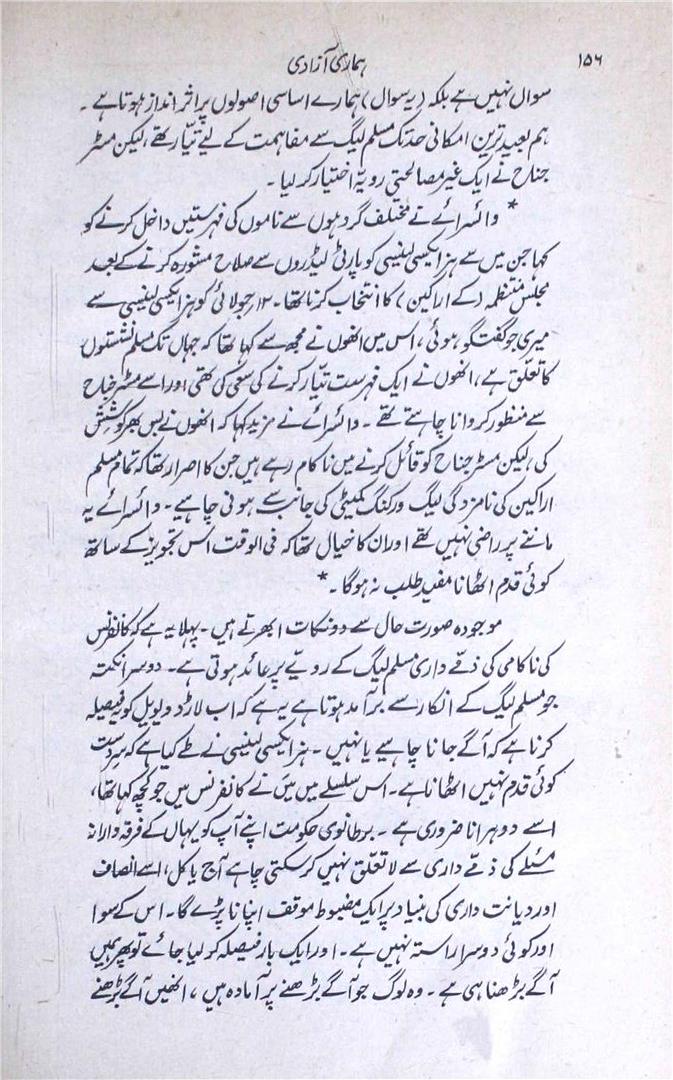 ۱۵۶
ہماری آزادی
سوال نہیں ہے بلکہ (یہ سوال) ہمارے اساسی اصولوں پر اثر انداز ہوتا ہے ۔
ہم بعید ترین امکانی حد تک مسلم لیگ سے مفاہمت کے لیے تیّار تھے، لیکن مسٹر
جناح نے ایک غیر مصالحتی رویّہ اختیار کر لیا ۔
* وائسرائے نے مختلف گروہوں سے ناموں کی فہرستیں داخل کرنے کو
کہا جن میں سے ہز ایکسی لینیسی کو پارٹی لیڈروں سے صلاح مشورہ کرنے کے بعد
مجلس منتظمہ (کے اراکین) کا انتخاب کرنا تھا ۔ ۱۲؍ جولائی کو ہز ایکسی لینیسی سے
میری جو گفتگو ہوئی، اس میں انھوں نے مجھ سے کہا تھا کہ جہاں تک مسلم نشستوں
کا تعلق ہے، انھوں نے ایک فہرست تیّار کرنے کی سعی کی تھی اور اسے مسٹر جناح
سے منظور کروانا چاہتے تھے ۔ وائسرائے نے مزید کہا کہ انھوں نے بس بھر کوشش
کی، لیکن مسٹر جناح کو قائل کرنے میں ناکام رہے ہیں جن کا اصرار تھا کہ تمام مسلم
اراکین کی نامزدگی لیگ ورکنگ کمیٹی کی جانب سے ہونی چاہیے ۔ وائسرائے یہ
ماننے پر راضی نہیں تھے اور ان کا خیال تھا کہ فی الوقت اس تجویز کے ساتھ
کوئی قدم اٹھانا مفیدِ طلب نہ ہوگا ۔ *
موجودہ صورت حال سے دو نکات ابھرتے ہیں ۔ پہلا یہ ہے کہ کانفرنس
کی ناکامی کی ذمّے داری مسلم لیگ کے رویّے پر عائد ہوتی ہے ۔ دوسرا نکتہ
جو مسلم لیگ کے انکار سے برآمد ہوتا ہے یہ ہے کہ اب لارڈ ویویل کو یہ فیصلہ
کرنا ہے کہ آگے جانا چاہیے یا نہیں ۔ ہز ایکسی لینیسی نے طے کیا ہے کہ سرِ دست
کوئی قدم نہیں اٹھانا ہے ۔ اس سلسلے میں میَں نے کانفرنس میں جو کچھ کہا تھا،
اسے دوہرانا ضروری ہے ۔ برطانوی حکومت اپنے آپ کو یہاں کے فرقہ وارانہ
مسئلے کی ذمّے داری سے لاتعلّق نہیں کر سکتی چاہے آج یا کل، اسے انصاف
اور دیانت داری کی بنیاد پر ایک مضبوط موقف اپنانا پڑے گا ۔ اس کے سوا
اور کوئی دوسرا راستہ نہیں ہے ۔ اور ایک بار فیصلہ کر لیا جائے تو پھر ہمیں
آگے بڑھنا ہی ہے ۔ وہ لوگ جو آگے بڑھنے پر آمادہ ہیں، انھیں آگے بڑھنے